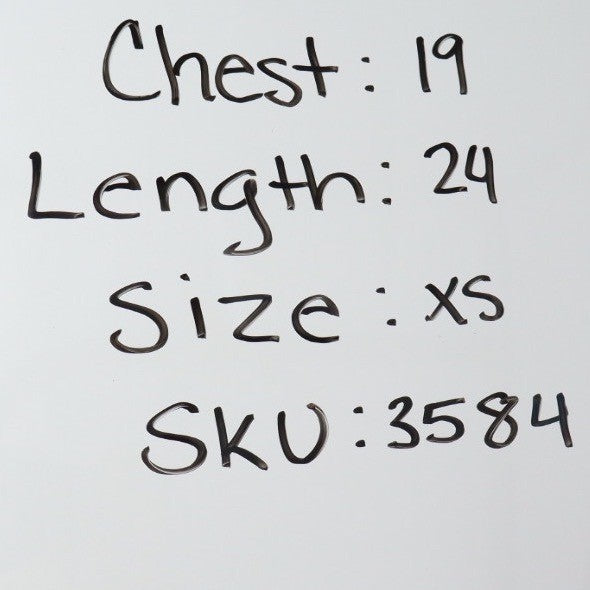 Chest: 19
Length: 24
Size: XS
SKU: 3584